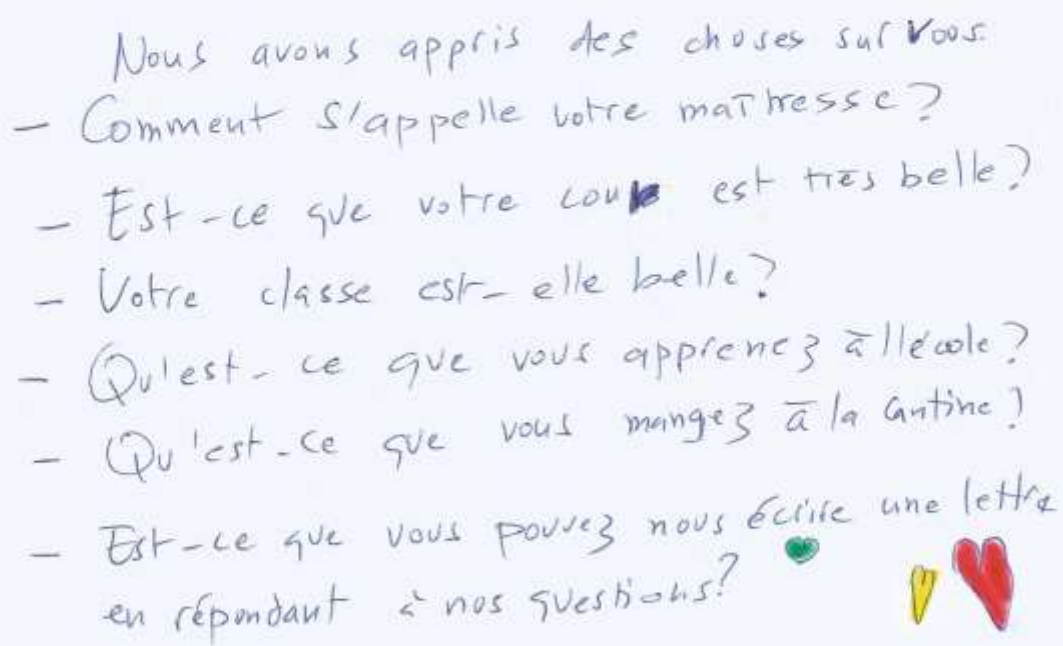 Nous avons appris des choses sur vous.
- Comment s'appelle votre maîtresse ?
- Est-ce que votre cour est très belle ?
- Votre classe est-elle belle ?
- Qu'est-ce que vous apprenez à l'école ?
- Qu'est-ce que vous mangez à la cantine ?
- Est-ce que vous pouvez nous écrire une lettre
en répondant à nos questions ?